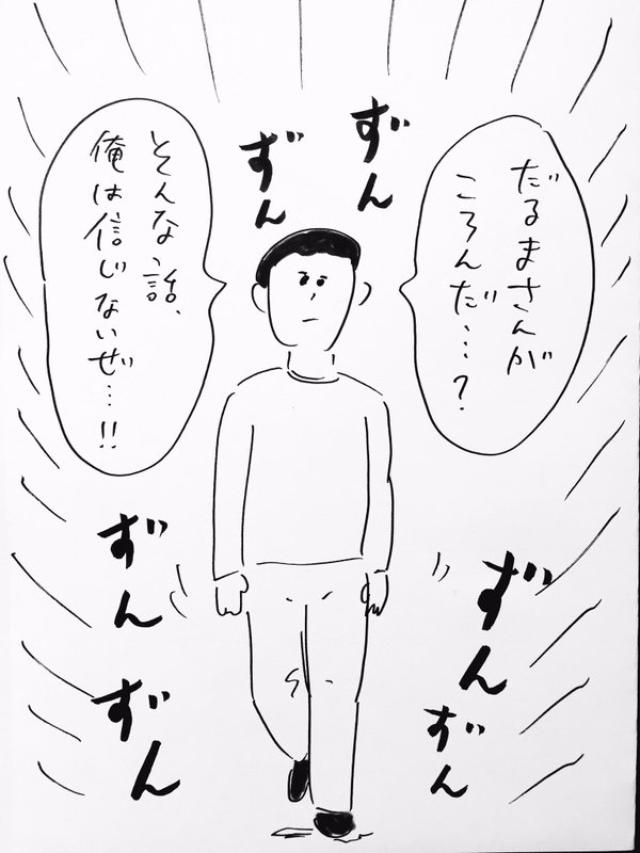 だるまさんが
ころんだ…？
そんな話、
俺は信じないぜ…!!
ずん
ずん
ずん
ずん
ずん
ずん